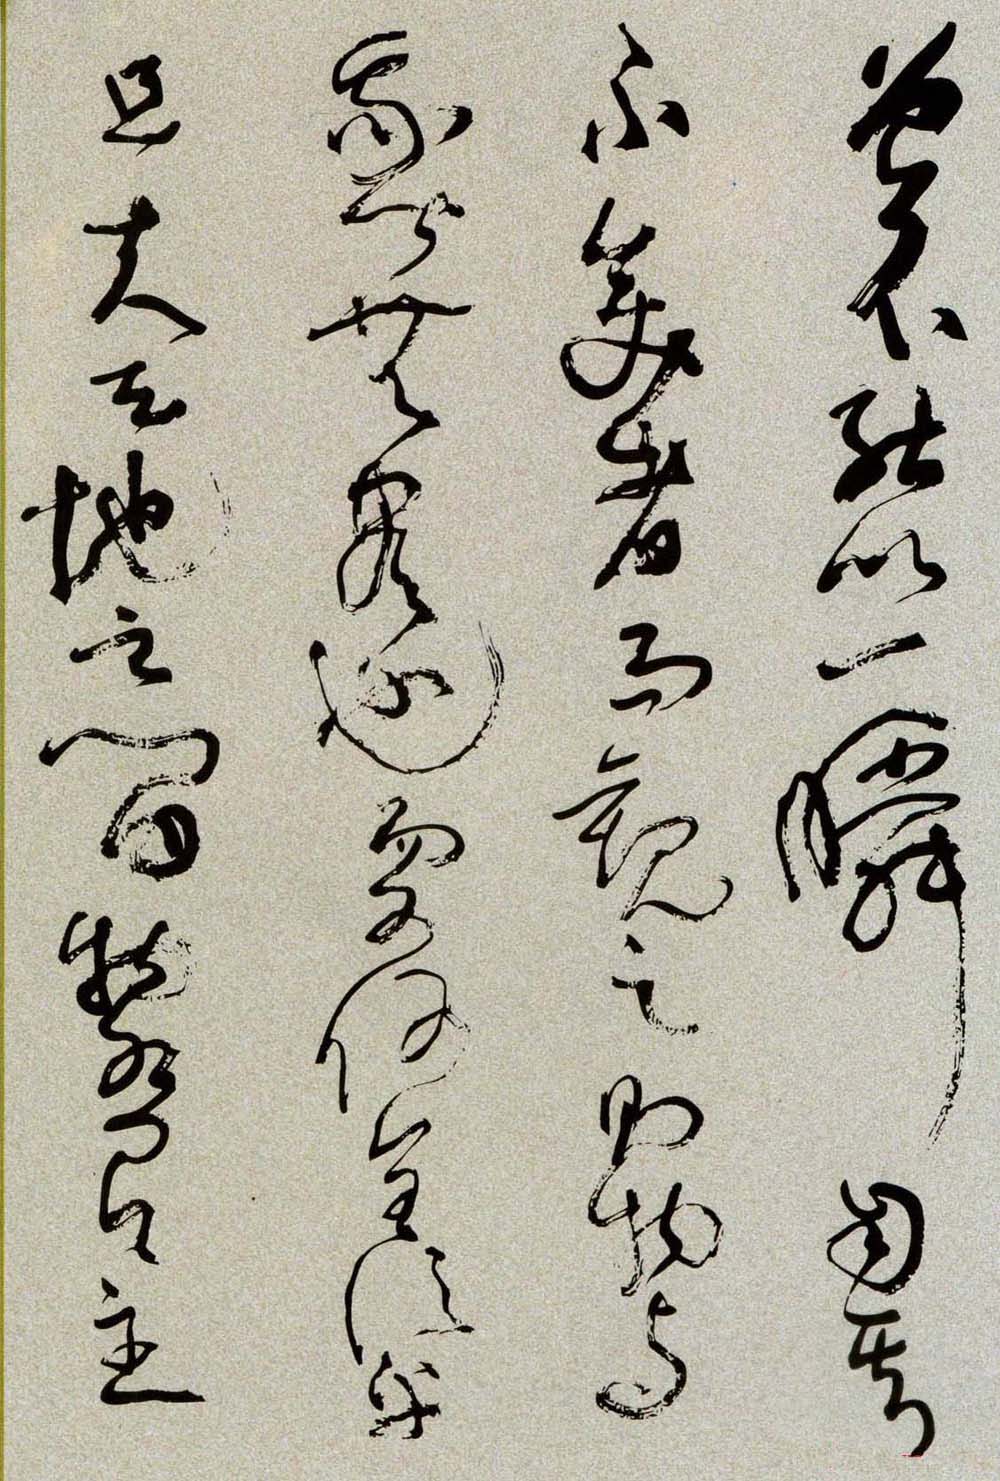 曾不能以一瞬自其
不變者而觀之則物與
我皆無盡也而又何羨乎
且夫天地之間物各有主